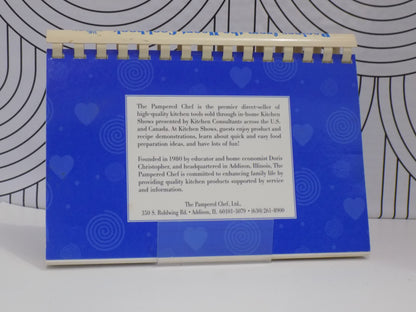 The Pampered Chef is the premier direct-seller of
high-quality kitchen tools sold through in-home Kitchen
Shows presented by Kitchen Consultants across the U.S.
and Canada. At Kitchen Shows, guests enjoy product and
recipe demonstrations, learn about quick and easy food
preparation ideas, and have lots of fun!
Founded in 1980 by educator and home economist Doris
Christopher, and headquartered in Addison, Illinois, The
Pampered Chef is committed to enhancing family life by
providing quality kitchen products supported by service
and information.
The Pampered Chef, Ltd.,
350 S. Rohlwing Rd. • Addison, IL 60101-3079 • (630) 261-8900